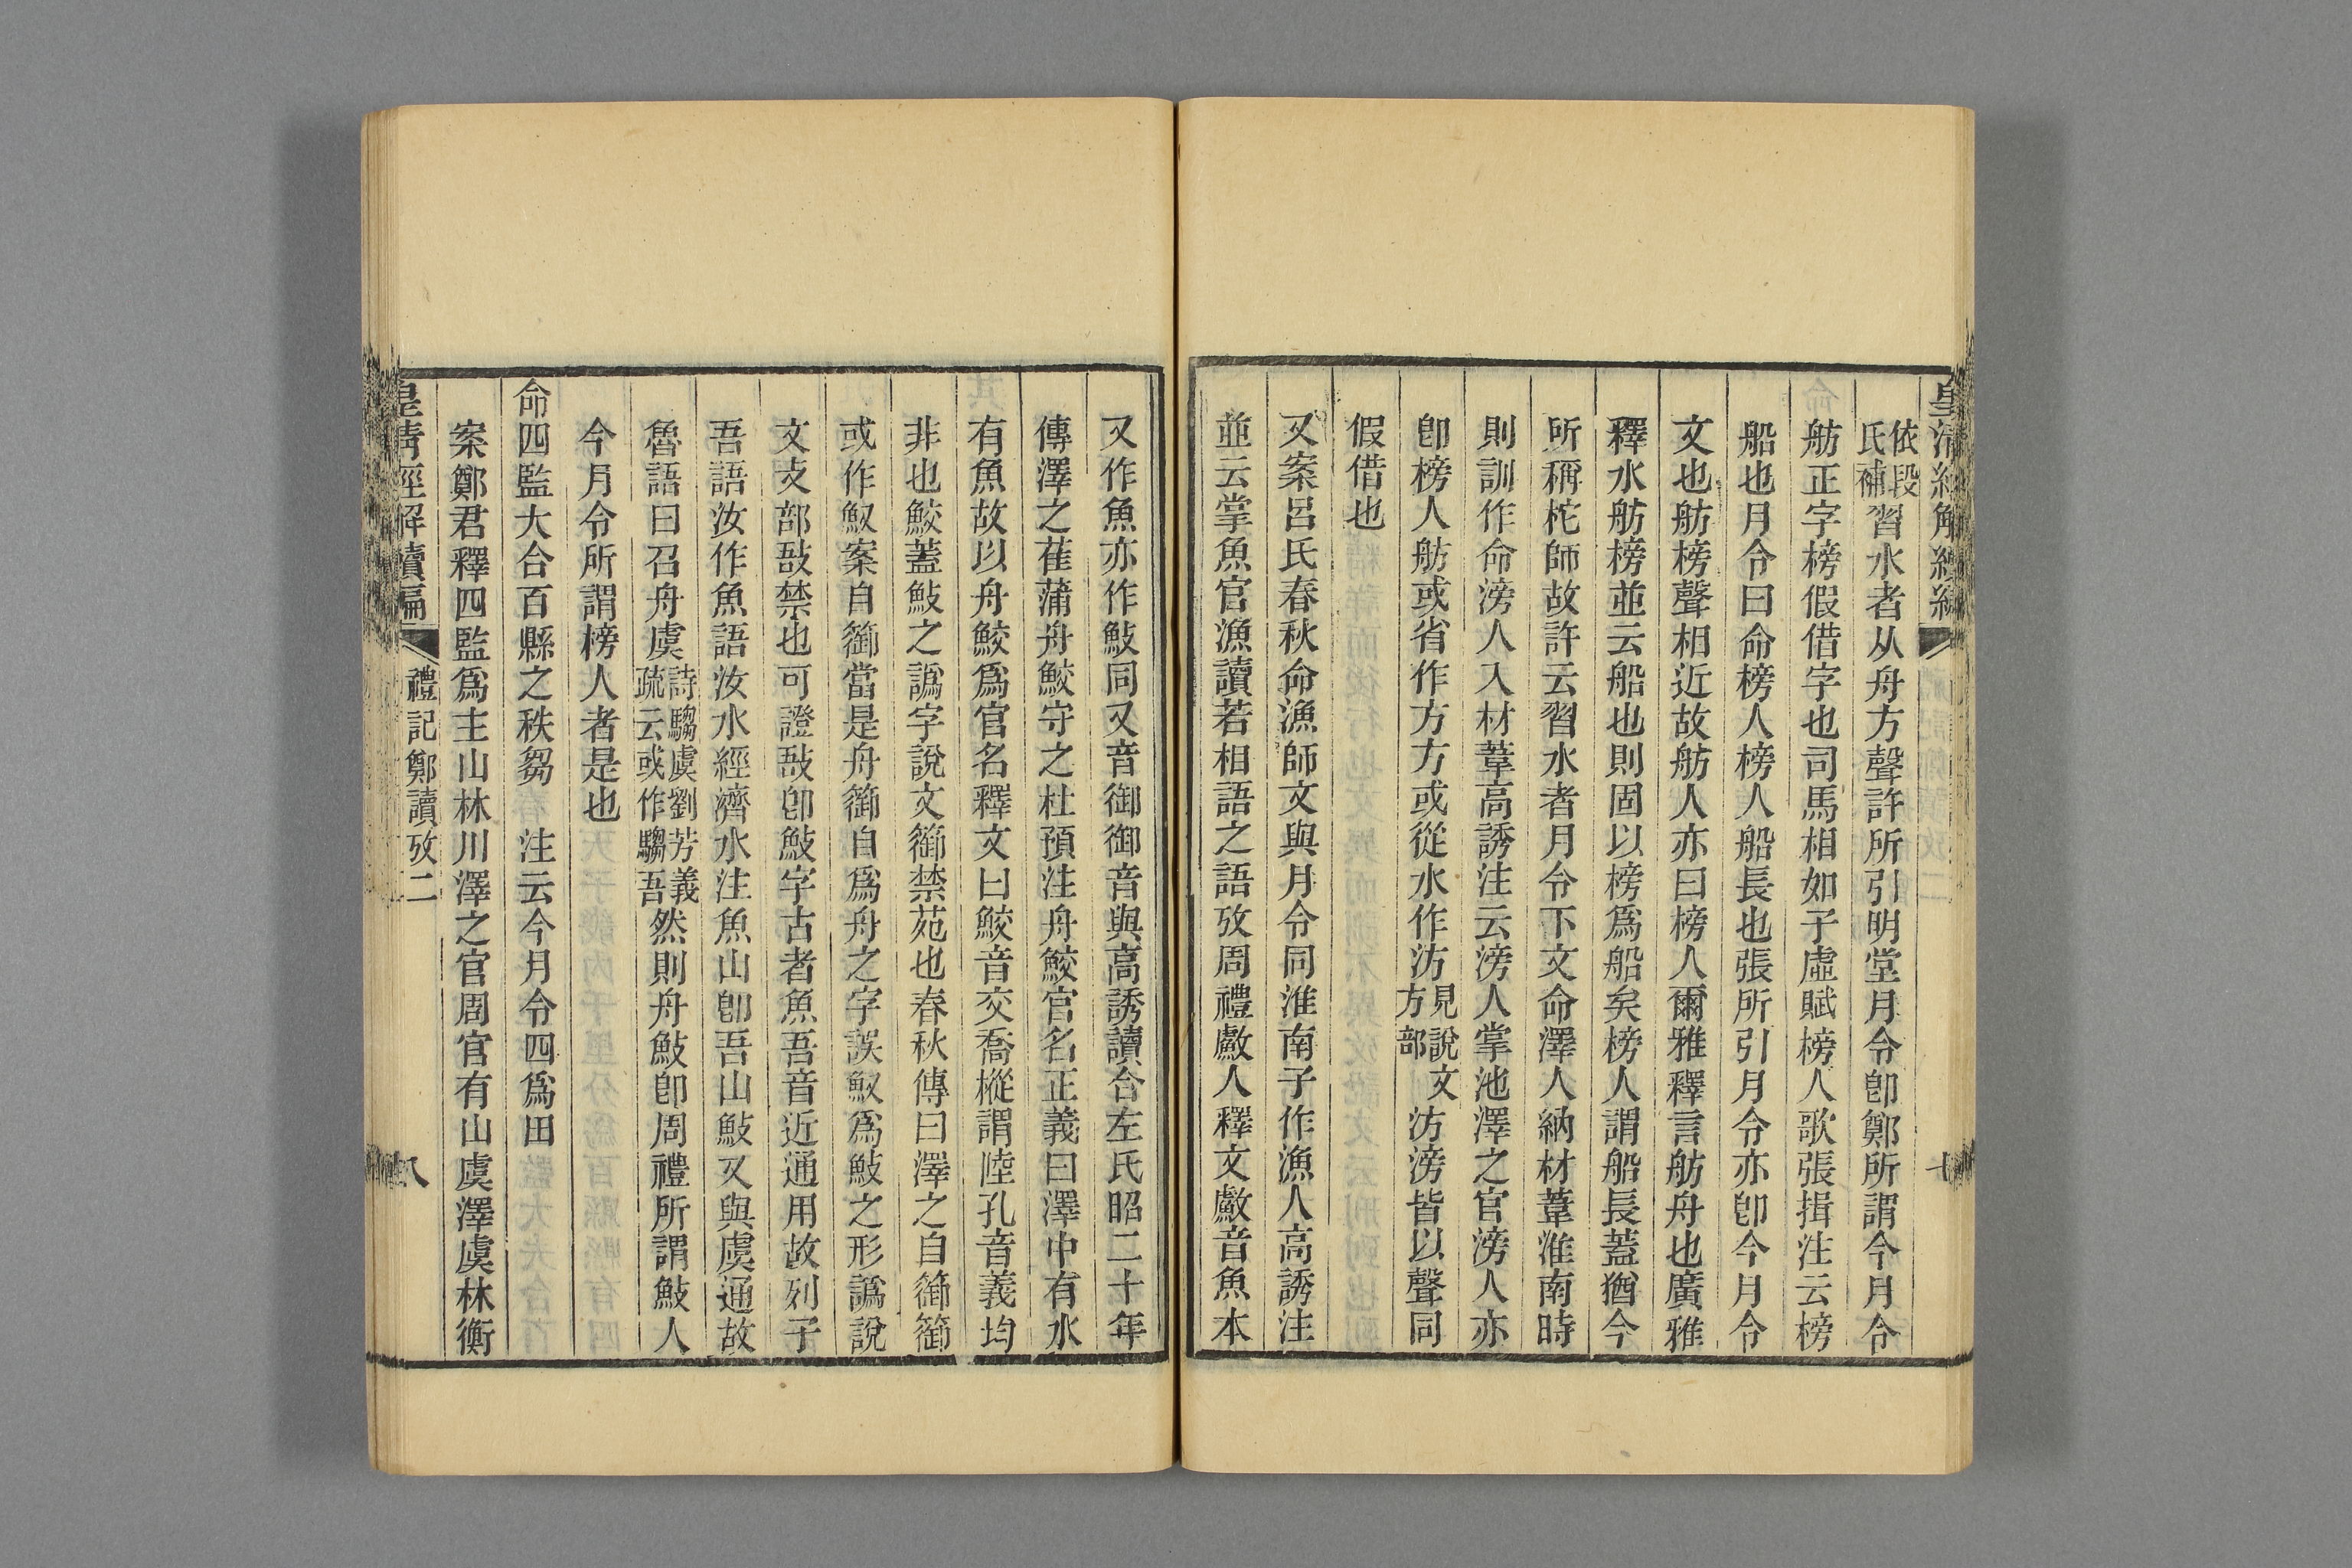 皇清經解續編
七
依段氏補習水者从舟方聲許所引明堂月令卽鄭所謂今月令
舫正字榜假借字也司馬相如子虛賦榜人歌張揖注云榜
船也月令曰命榜人榜人船長也張所引月令亦卽今月令
文也舫榜聲相近故舫人亦曰榜人爾雅釋言舫舟也廣雅
釋水舫榜並云船也則固以榜爲船矣榜人謂船長蓋猶今
所稱柁師故許云習水者月令下文命澤人納材葦淮南時
則訓作命滂人入材葦高誘注云滂人掌池澤之官滂人亦
卽榜人舫或省作方方或從水作汸見說文方部汸滂皆以聲同
假借也
又案呂氏春秋命漁師文與月令同淮南子作漁人高誘注
並云掌魚官漁讀若相語之語攷周禮䱷人釋文䱷音魚本
又作魚亦作䰻同又音御御音與高誘讀合左氏昭二十年
傳澤之萑蒲舟鮫守之杜預注舟鮫官名正義曰澤中有水
有魚故以舟鮫爲官名釋文曰鮫音交喬樅謂陸孔音義均
非也鮫蓋䰻之譌字說文籞禁苑也春秋傳曰澤之自籞籞
或作𩵎案自籞當是舟籞自爲舟之字誤𩵎爲䰻之形譌說
文攴部敔禁也可證敔卽䰻字古者魚吾音近通用故列子
吾語汝作魚語汝水經濟水注魚山卽吾山䰻又與虞通故
魯語曰召舟虞詩騶虞劉芳義疏云或作騶吾然則舟䰻卽周禮所謂䰻人
今月令所謂榜人者是也
命四監大合百縣之秩芻　注云今月令四爲田
案鄭君釋四監爲主山林川澤之官周官有山虞澤虞林衡
皇清經解續編
禮記鄭讀攷二
八